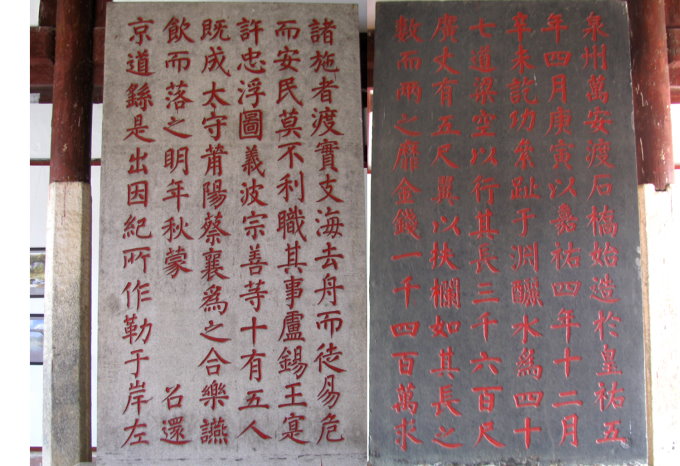 泉州萬安渡石橋始造於皇祐五
年四月庚寅以嘉祐四年十二月
辛未訖功絫趾于淵釃水爲四十
七道梁空以行其長三千六百尺
廣丈有五尺翼以扶欄如其長之
數而兩之靡金錢一千四百萬求
諸施者渡實支海去舟而徒易危
而安民莫不利職其事盧錫王寔
許忠浮圖義波宗善等十有五人
既成太守莆陽蔡襄爲之合樂讌
飲而落之明年秋蒙 召還
京道繇是出因紀所作勒于岸左